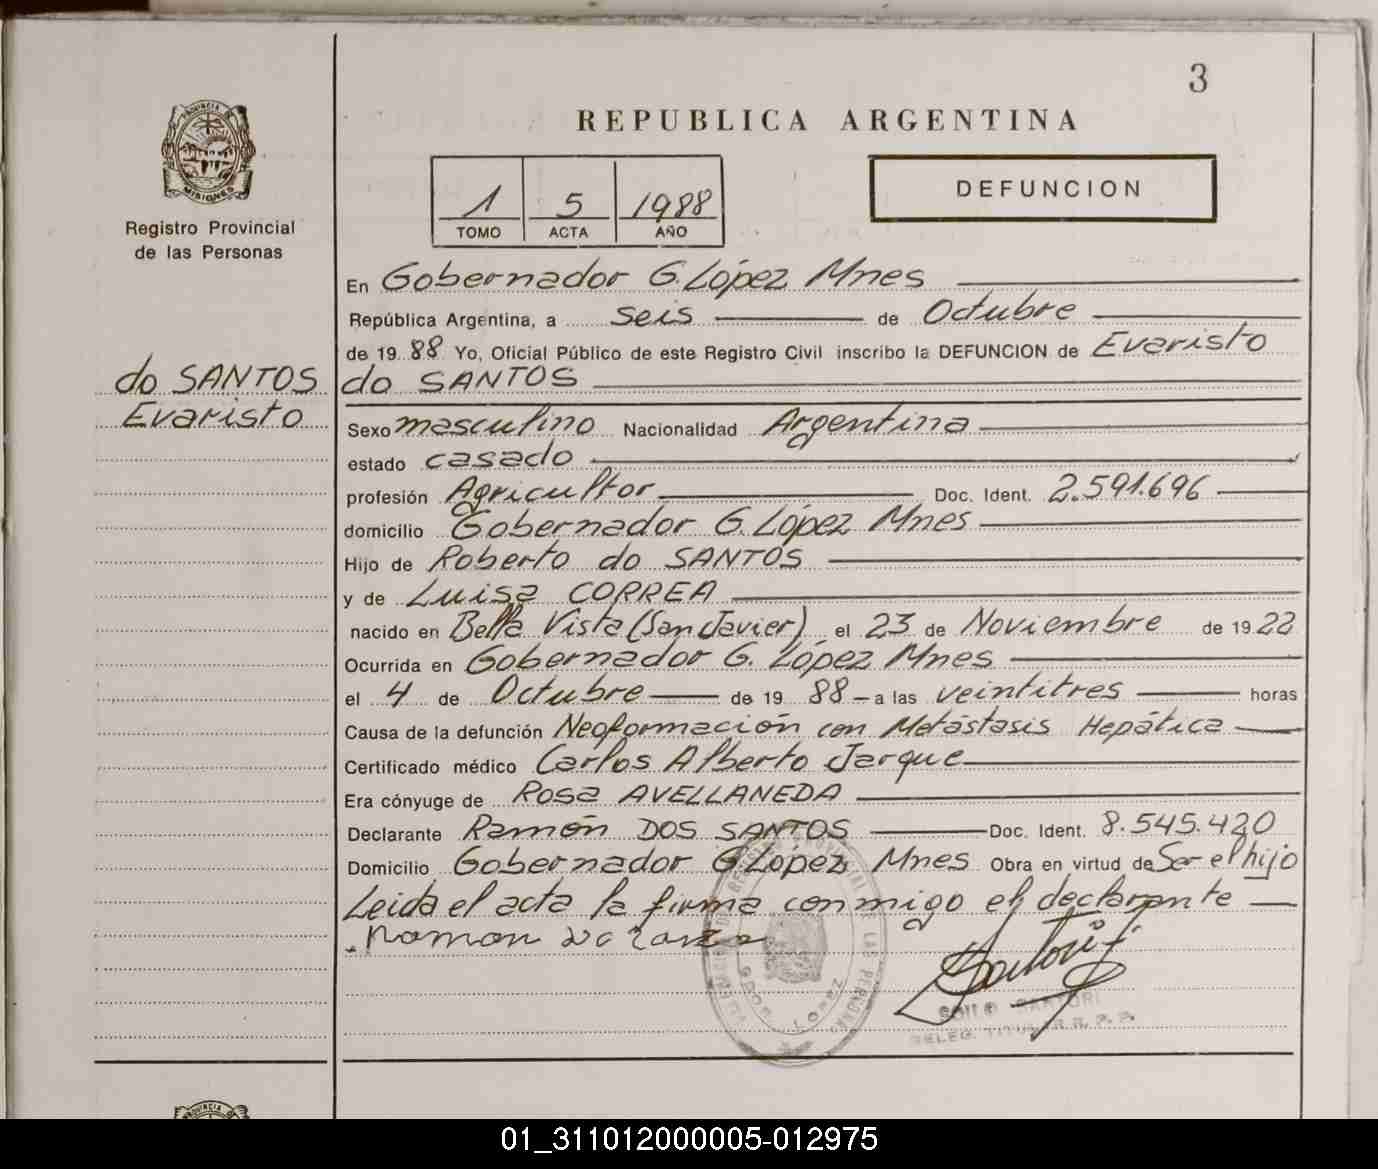 3
REPUBLICA ARGENTINA
PROVINCIA DE
MISIONES
Registro Provincial
de las Personas
1 5 1988
TOMO ACTA AÑO
DEFUNCION
En Gobernador G. López Mnes
República Argentina, a seis de Octubre
de 1988 Yo, Oficial Público de este Registro Civil inscribo la DEFUNCION de Evaristo
do SANTOS
do SANTOS
Evaristo
Sexo masculino Nacionalidad Argentina
estado casado
profesión Agricultor Doc. Ident. 2.591.696
domicilio Gobernador G. López Mnes
Hijo de Roberto do SANTOS
y de Luisa CORREA
nacido en Bella Vista (San Javier) el 23 de Noviembre de 1922
Ocurrida en Gobernador G. López Mnes
el 4 de Octubre de 19 88 a las veintitres horas
Causa de la defunción Neoformación con Metástasis Hepática
Certificado médico Carlos Alberto Jarque
Era cónyuge de Rosa AVELLANEDA
Declarante Ramón DOS SANTOS Doc. Ident. 8.545.420
Domicilio Gobernador G López Mnes Obra en virtud de Ser el hijo
Leida el acta la firma conmigo el declarante
Ramon
SARTORI
DELEG. TITULAR R. P. P.
REGISTRO PROVINCIAL DE LAS PERSONAS
GDOR. LOPEZ
01_311012000005-012975